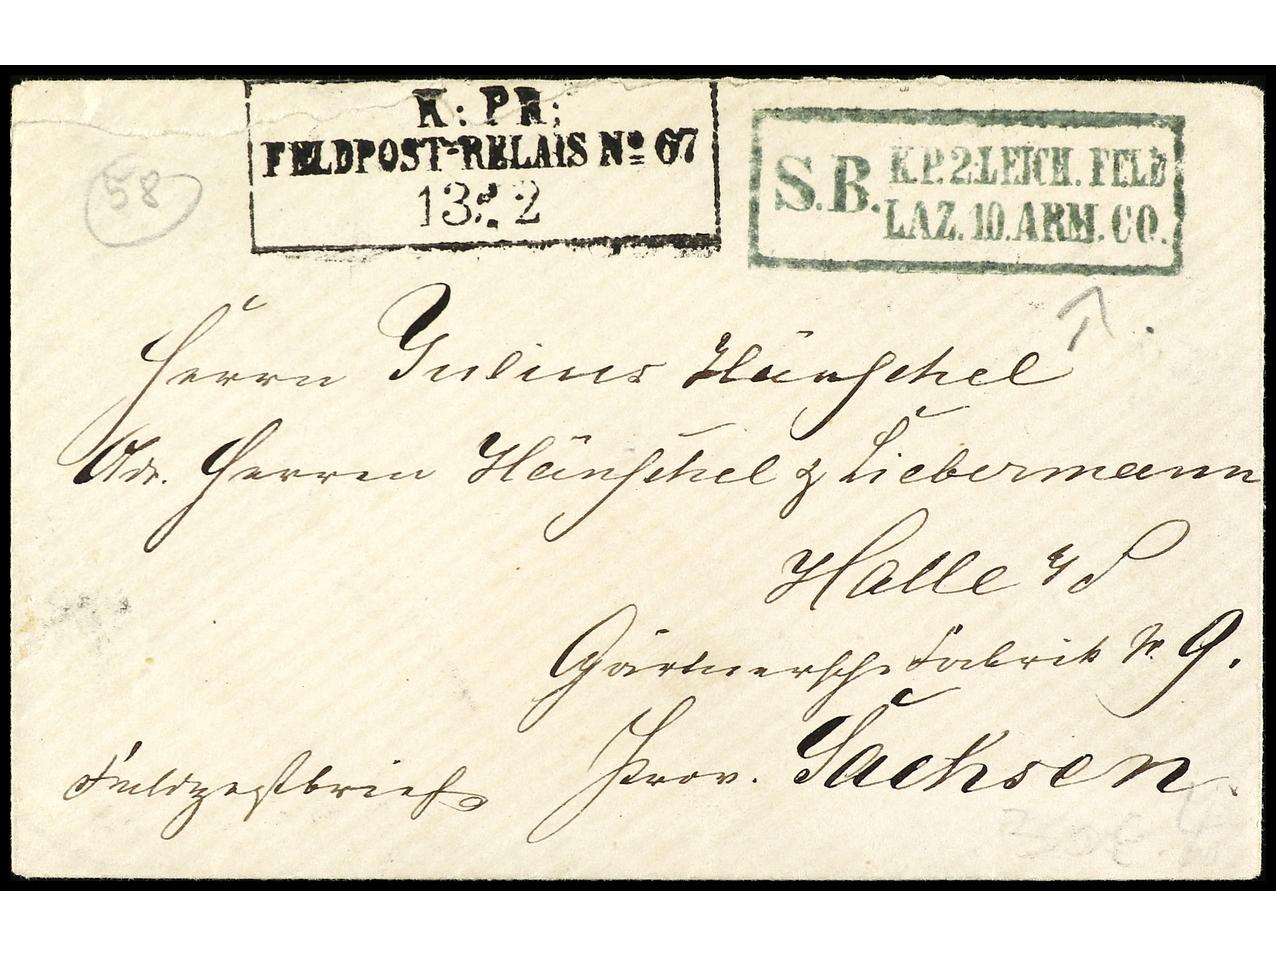 K: PR:
FELDPOST-RELAIS No 67
13 2
S.B. K.P.2.LEICH. FELD
LAZ. 10. ARM. CO.
58
Herrn Julius Hänschel
Adr. Herren Hänschel & Liebermann
Halle a/S
Gärtnersche Fabrik No 9.
Prov. Sachsen
Feldpostbrief